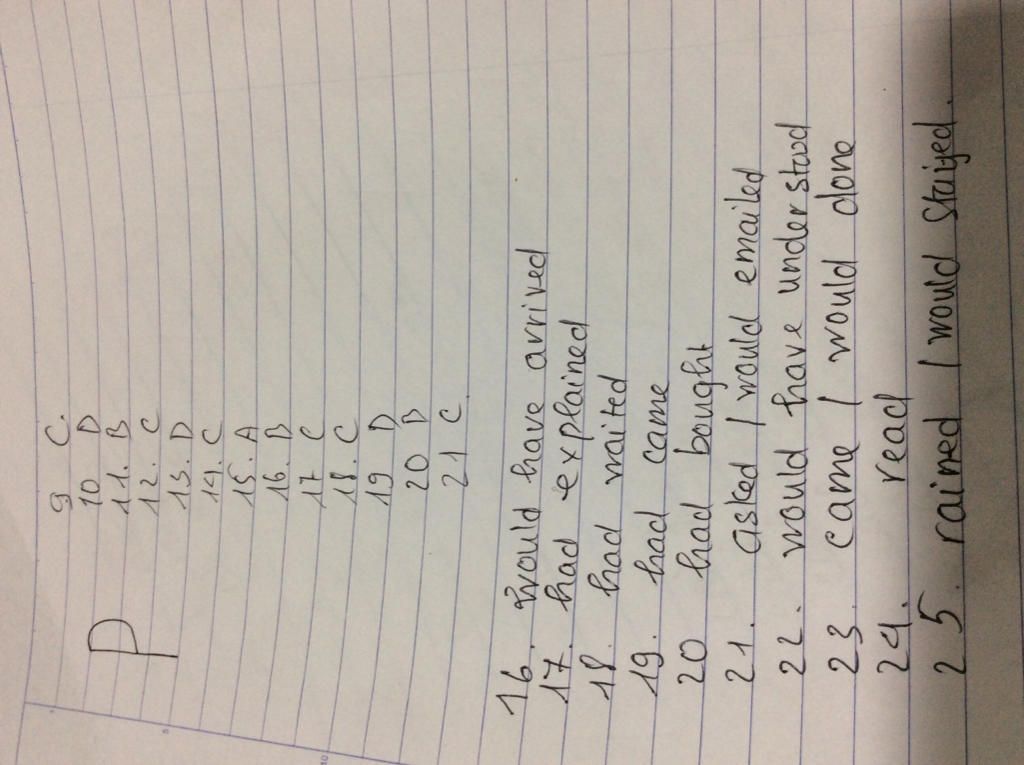 P
9 C.
10 D
11. B
12. C
13. D
14. C
15. A
16. B
17 C
18. C
19 D
20 B
21 C
16. would have arrived
17. had explained
18. had waited
19. had came
20 had bought
21. asked / would emailed
22. would have understood
23. came / would done
24. read
25. rained / would stayed.